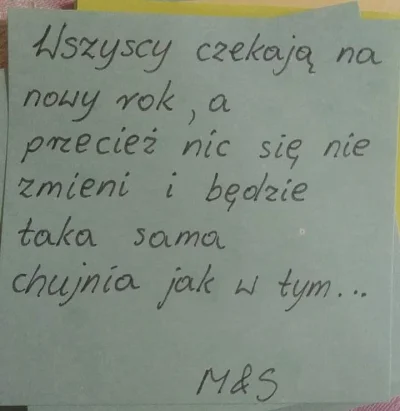 Wszyscy czekają na
nowy rok, a
przecież nic się nie
zmieni i będzie
taka sama
chujnia jak w tym...
M&S